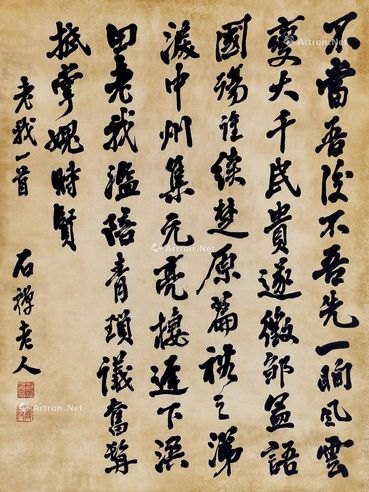 不當吾後不吾先一瞬風雲
變大千民貴遂徵鄒孟語
國殤誰續楚原篇裕之涕
淚中州集元亮棲遲下潠
田老我濫陪青瑣議奮髯
抵掌媿時賢
老我一首
石禪老人
Artron.Net
Artron.Net
Artron.Net